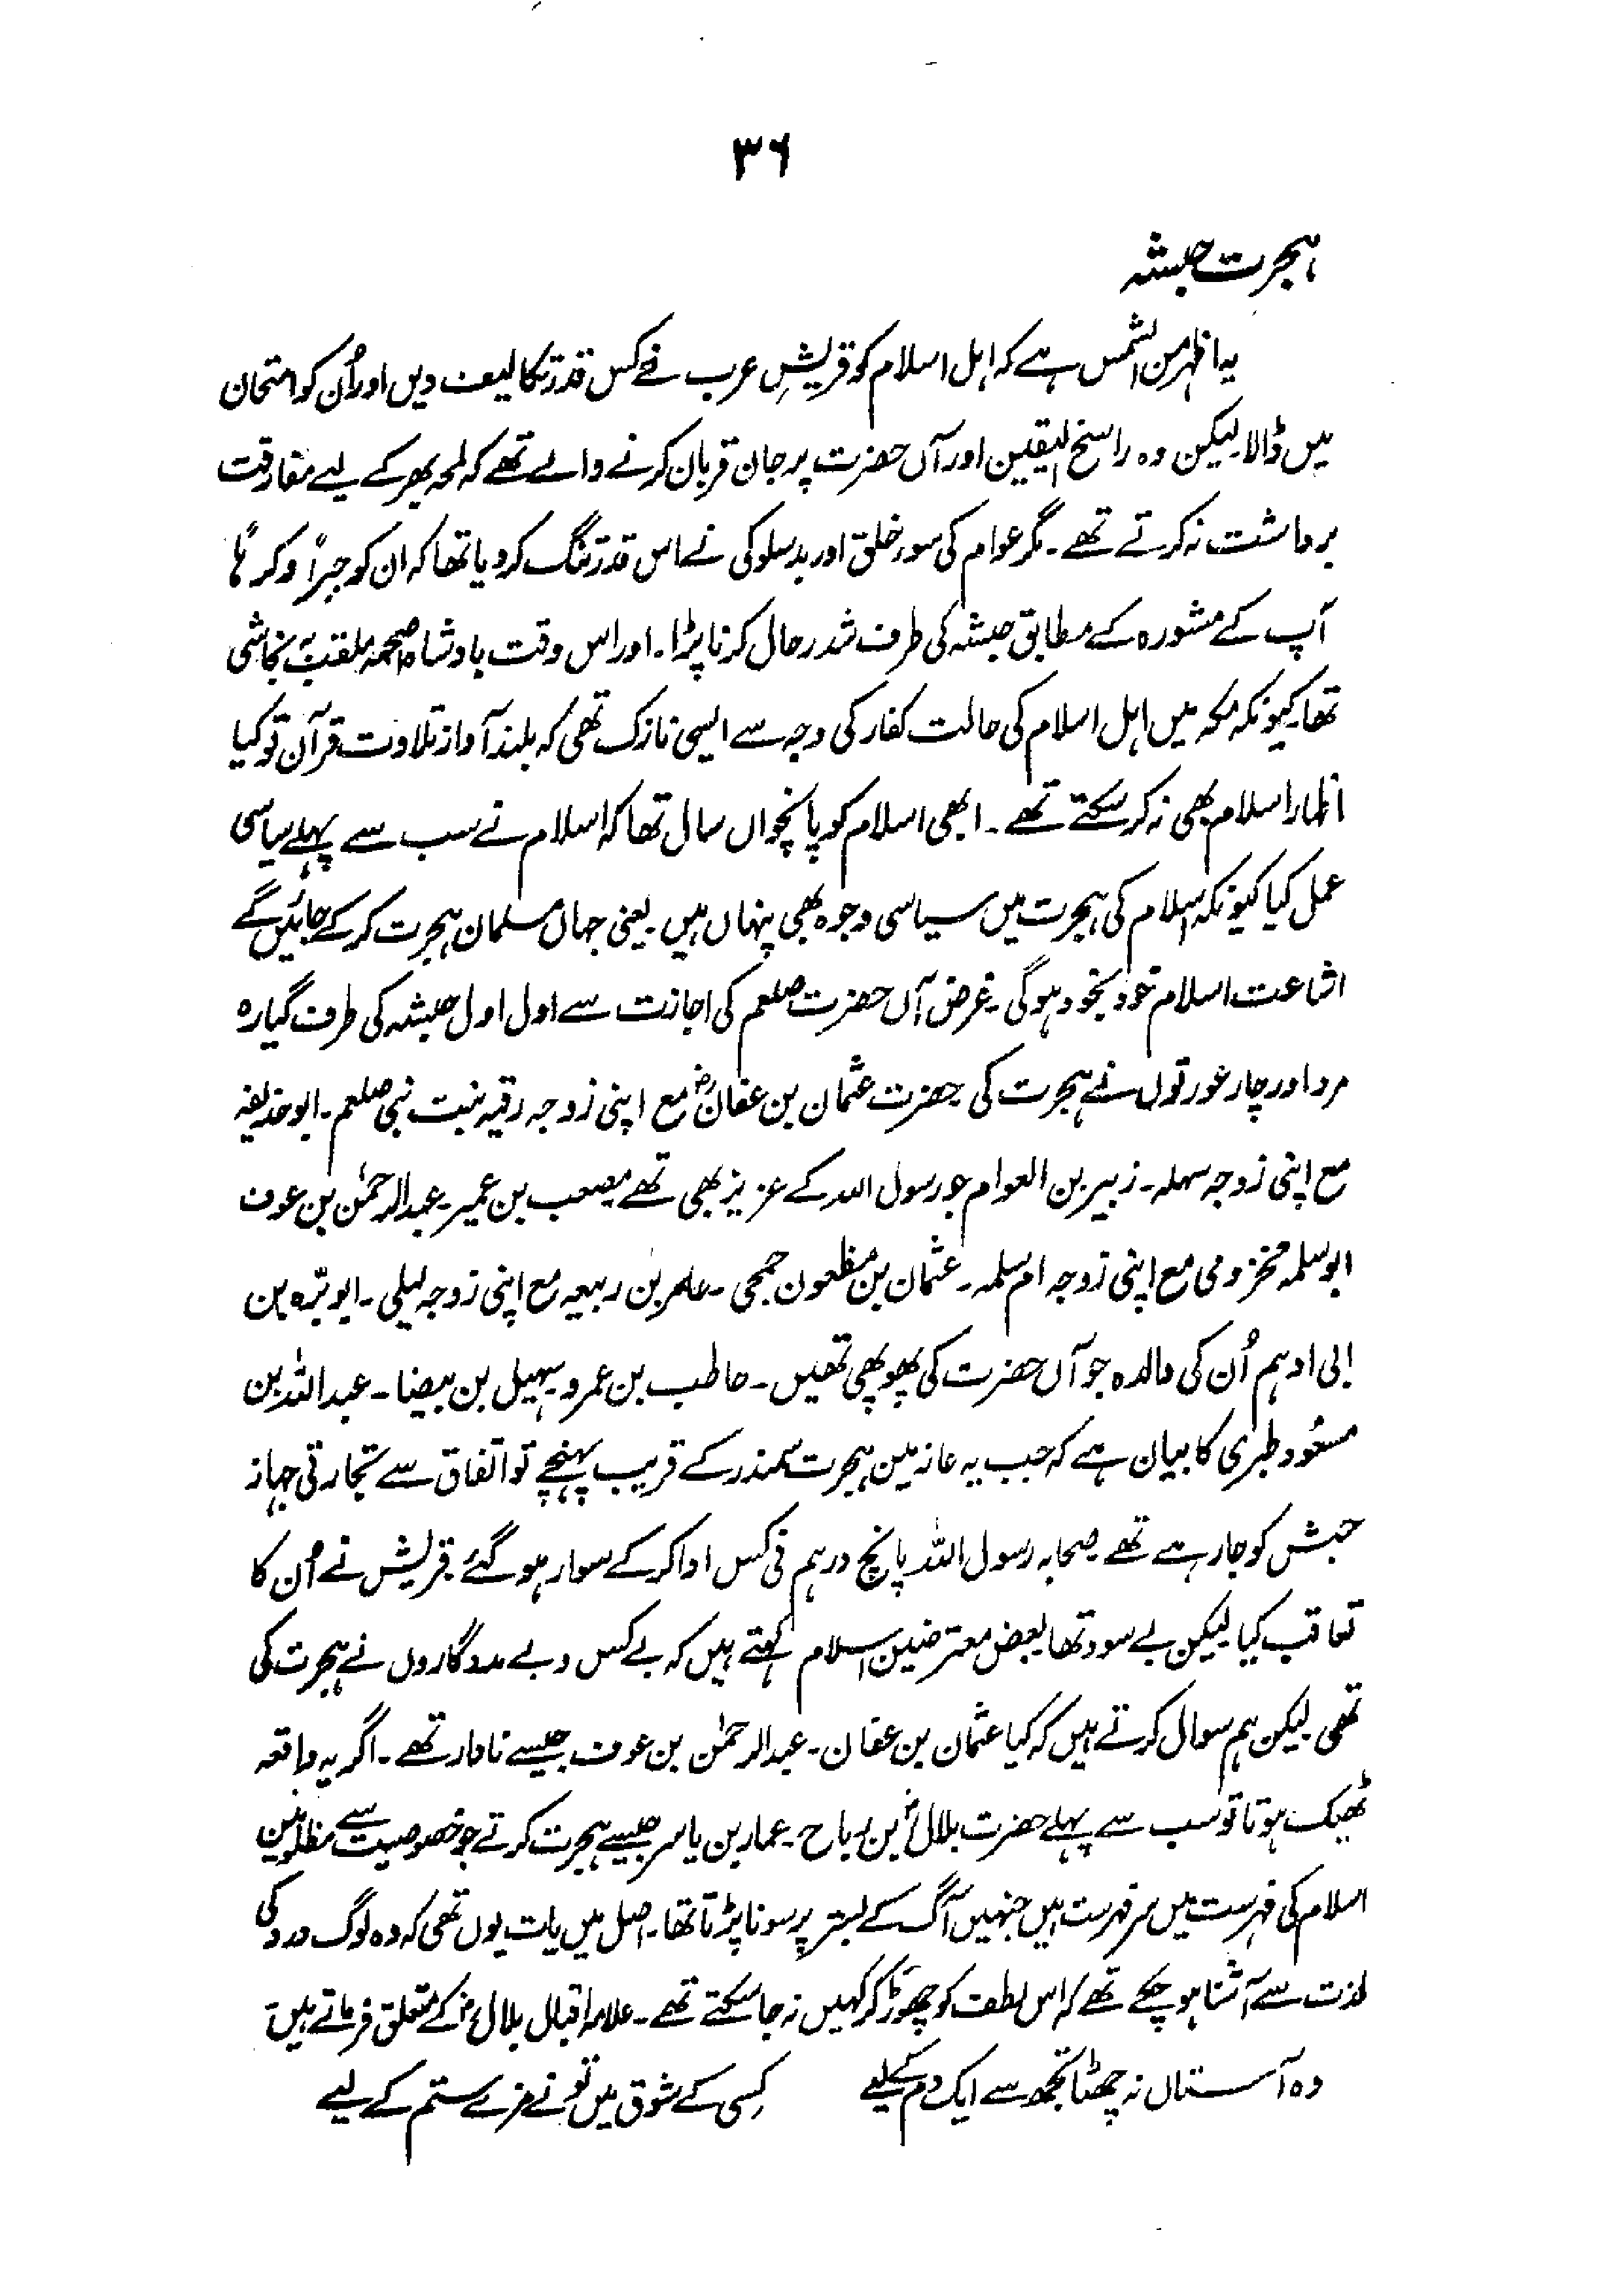 ۳۶
ہجرت حبشہ
یہ اظہر من الشمس ہے کہ اہل اسلام کو قریشِ عرب نے کس قدر تکالیف دیں اور اُن کو امتحان
میں ڈالا۔ لیکن وہ راسخ الیقین اور آں حضرت پر جان قربان کرنے والے تھے کہ لمحہ بھر کے لیے مفارقت
برداشت نہ کرتے تھے۔ مگر عوام کی سور خلق اور بدسلوکی نے اس قدر تنگ کر دیا تھا کہ ان کو جبراً و کرہاً
آپ کے مشورہ کے مطابق حبشہ کی طرف شدرحال کرنا پڑا۔ اور اس وقت بادشاہ اصحمہ ملقب بہ نجاشی
تھا۔ کیونکہ مکہ میں اہل اسلام کی حالت کفار کی وجہ سے ایسی نازک تھی کہ بلند آواز تلاوت قرآن تو کیا
اظہار اسلام بھی نہ کر سکتے تھے۔ ابھی اسلام کو پانچواں سال تھا کہ اسلام نے سب سے پہلے سیاسی
عمل کیا کیونکہ اسلام کی ہجرت میں سیاسی وجوہ بھی پنہاں ہیں۔ یعنی جہاں مسلمان ہجرت کر کے جائیں گے
اشاعت اسلام خود بخود ہوگی۔ غرض آں حضرت صلعم کی اجازت سے اول اول حبشہ کی طرف گیارہ
مرد اور چار عورتوں نے ہجرت کی۔ حضرت عثمان بن عفانؓ مع اپنی زوجہ رقیہ بنت نبی صلعم۔ ابو حذیفہ
مع اپنی زوجہ سہلہ۔ زبیر بن العوام جو رسول اللہ کے عزیز بھی تھے۔ مصعب بن عمیر۔ عبدالرحمٰن بن عوف
ابو سلمہ مخزومی مع اپنی زوجہ ام سلمہ۔ عثمان بن مظعون جمحی۔ عامر بن ربیعہ مع اپنی زوجہ لیلی۔ ابو سّرہ بن
ابی ادہم اُن کی والدہ جو آں حضرت کی پھوپھی تھیں۔ حاطب بن عمرو۔ سہیل بن بیضا۔ عبداللہ بن
مسعُود طبری کا بیان ہے کہ جب یہ عازمین ہجرت سمندر کے قریب پہنچے تو اتفاق سے تجارتی جہاز
حبش کو جا رہے تھے۔ صحابہ رسول اللہ پانچ درہم فی کس ادا کر کے سوار ہو گئے۔ قریش نے اُن کا
تعاقب کیا لیکن بے سود تھا۔ بعض معترضین اسلام کہتے ہیں کہ بے کس و بے مددگاروں نے ہجرت کی
تھی۔ لیکن ہم سوال کرتے ہیں کہ کیا عثمان بن عفان۔ عبدالرحمٰن بن عوف جیسے نادار تھے۔ اگر یہ واقعہ
ٹھیک ہوتا تو سب سے پہلے حضرت بلالؓ بن رباح۔ عمار بن یاسر جیسے ہجرت کرتے جو خصوصیت سے مظلومین
اسلام کی فہرست میں سر فہرست ہیں جنہیں آگ کے بستر پر سونا پڑتا تھا۔ اصل میں بات یوں تھی کہ وہ لوگ درد کی
لذت سے آشنا ہو چکے تھے کہ اس لطف کو چھوڑ کر کہیں نہ جا سکتے تھے۔ علامہ اقبال بلالؓ کے متعلق فرماتے ہیں
وہ آستاں نہ چھٹا تجھ سے ایک دم کے لیے کِسی کے شوق میں تُو نے مزے ستم کے لیے